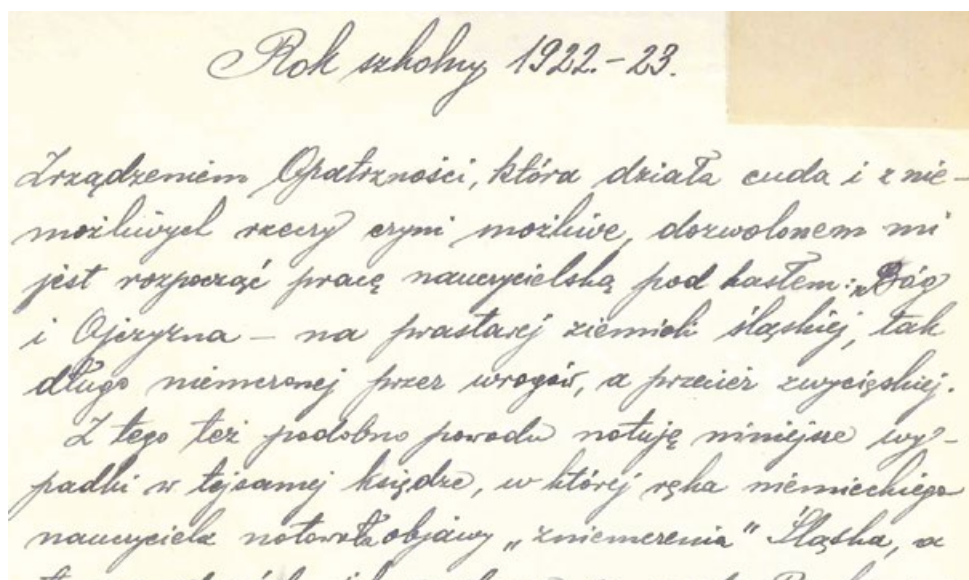 Rok szkolny 1922.-23.
Zrządzeniem Opatrzności, która działa cuda i z nie-
możliwych rzeczy czyni możliwe, dozwolonem mi
jest rozpocząć pracę nauczycielską pod hasłem: „Bóg
i Ojczyzna – na prastarej ziemicki śląskiej, tak
długo niemczonej przez wrogów, a przecież zwycięskiej.
Z tego też podobno powodu notuję niniejsze wy-
padki w tejsamej księdze, w której ręka niemieckiego
nauczyciela notowała objawy „zniemczenia" Śląska, a